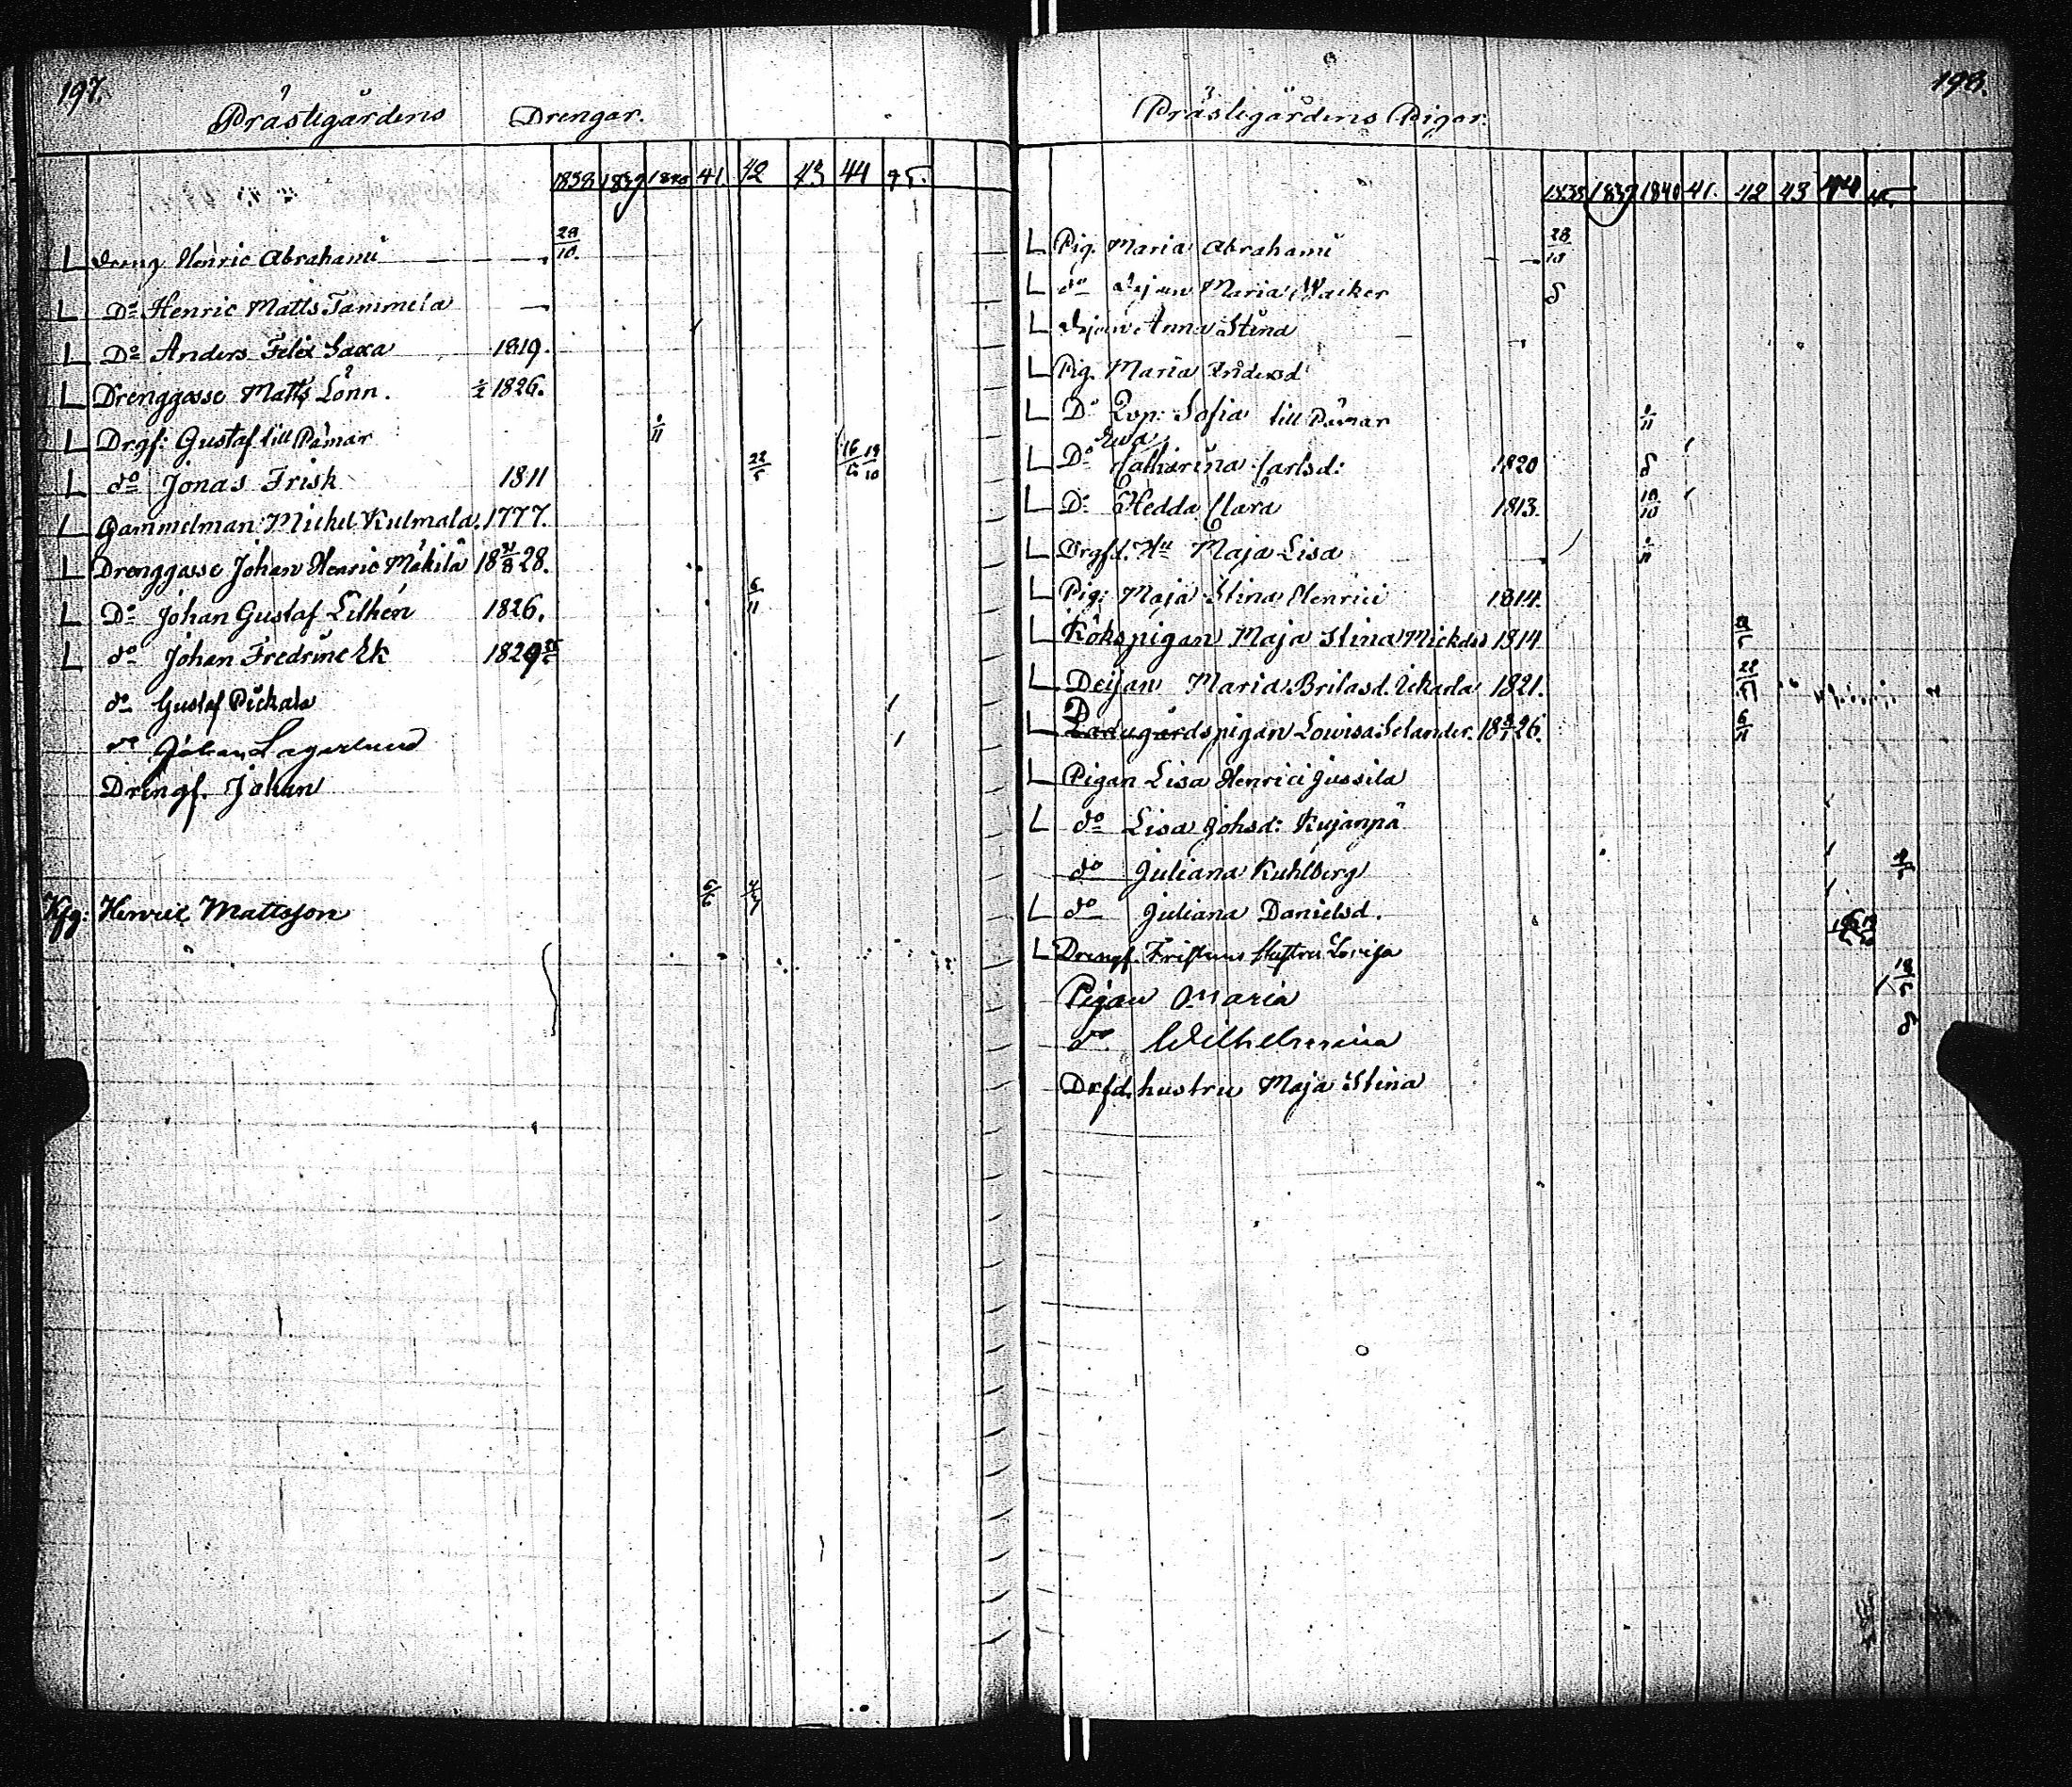 197.
Prästegårdens Drengar.
1838 1839 1840 41. 42 43 44 45.
L Dreng Henric Abrahami 28/10.
L Do Henric Matts Tammela
L Do Anders Felix Saxa 1819.
L Drenggosse Matts Lönn. 1826.
L Drgf: Gustaf till Påmar 1/11
L do Jonas Frisk 1811 22/5 16/5 19/10
L Gammelman Mickel Kulmala. 1777.
L Drenggosse Johan Henric Mäkilä 1828.
L Do Johan Gustaf Lithén 1826. 6/11
L do Johan Fredric Ek 1829
do Gustaf Pickala
do Johan Lagerlund
Drengf. Johan
Henric Mattsson
198.
Prästegårdens Pigor.
1838 1839 1840 41. 42 43 44 45
L Pig. Maria Abrahami 28/10
L do Dejan Maria Wacker
L Dejan Anna Stina
L Pig. Maria Andersd
L Do Sofia till Påmar 1/11
Ewa
L Do Catharina Carlsd: 1820
L Do Hedda Clara 1813. 10/10
L Drgfd. Hu Maja Lisa 1/11
L Pig: Maja Stina Henrici 1814.
L Kökspigan Maja Stina Mickels 1814
L Deijan Maria Britasd. Uckarla 1821. 22/5
L Ladugårdspigan Lowisa Selander. 1826. 6/11
L Pigan Lisa Henrici Jussila
L do Lisa Johsd: Kujanpä
do Juliana Kuhlberg
L do Juliana Danielsd.
L Drengf. Friskens hustru Lovisa
Pigan Maria 18/5
do Wilhelmina
Drfd. hustru Maja Stina